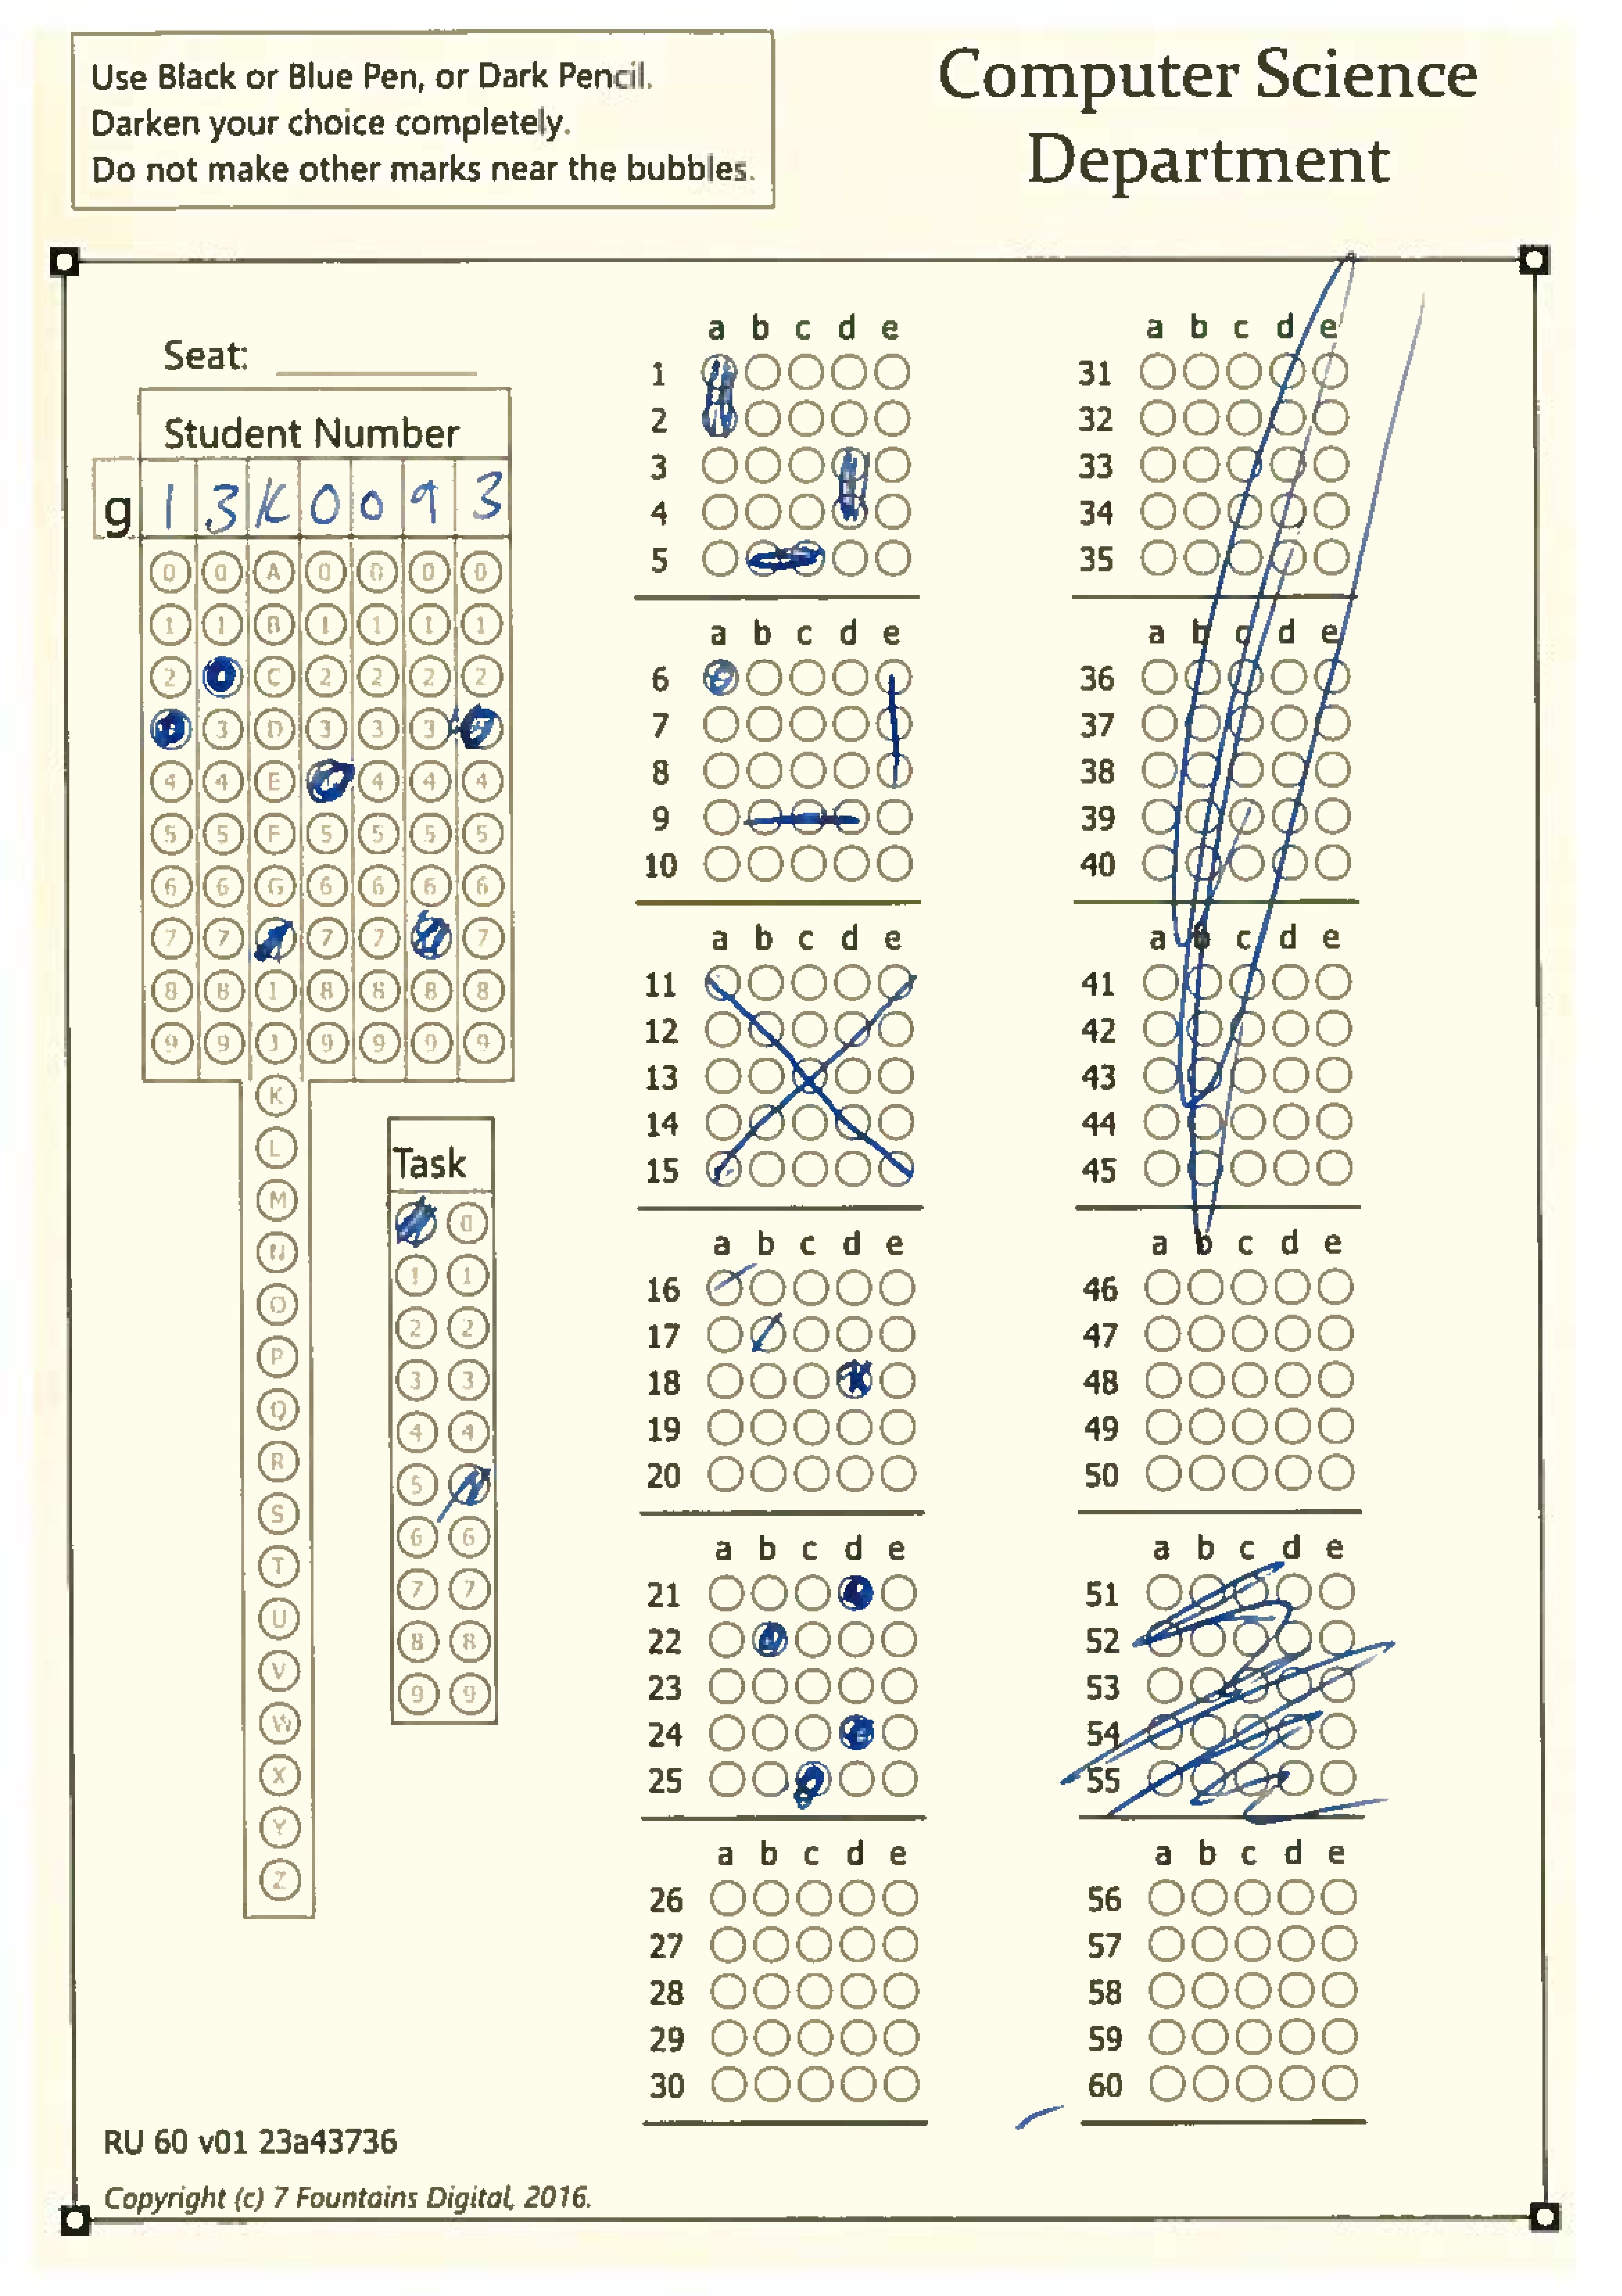 Use Black or Blue Pen, or Dark Pencil.
Darken your choice completely.
Do not make other marks near the bubbles.
Computer Science
Department
Seat:
Student Number
g 1 3 K 0 0 9 3
0 0 A 0 0 0 0
1 1 B 1 1 1 1
2 C 2 2 2 2
3 D 3 3 3
4 4 E 4 4 4
5 5 F 5 5 5 5
6 6 G 6 6 6 6
7 7 7 7 7
8 8 I 8 8 8 8
9 9 J 9 9 9 9
K
L
M
N
O
P
Q
R
S
T
U
V
W
X
Y
Z
Task
0
1 1
2 2
3 3
4 4
5
6 6
7 7
8 8
9 9
a b c d e
1
2
3
4
5
a b c d e
6
7
8
9
10
a b c d e
11
12
13
14
15
a b c d e
16
17
18
19
20
a b c d e
21
22
23
24
25
a b c d e
26
27
28
29
30
a b c d e
31
32
33
34
35
a b c d e
36
37
38
39
40
a b c d e
41
42
43
44
45
a b c d e
46
47
48
49
50
a b c d e
51
52
53
54
55
a b c d e
56
57
58
59
60
RU 60 v01 23a43736
Copyright (c) 7 Fountains Digital, 2016.